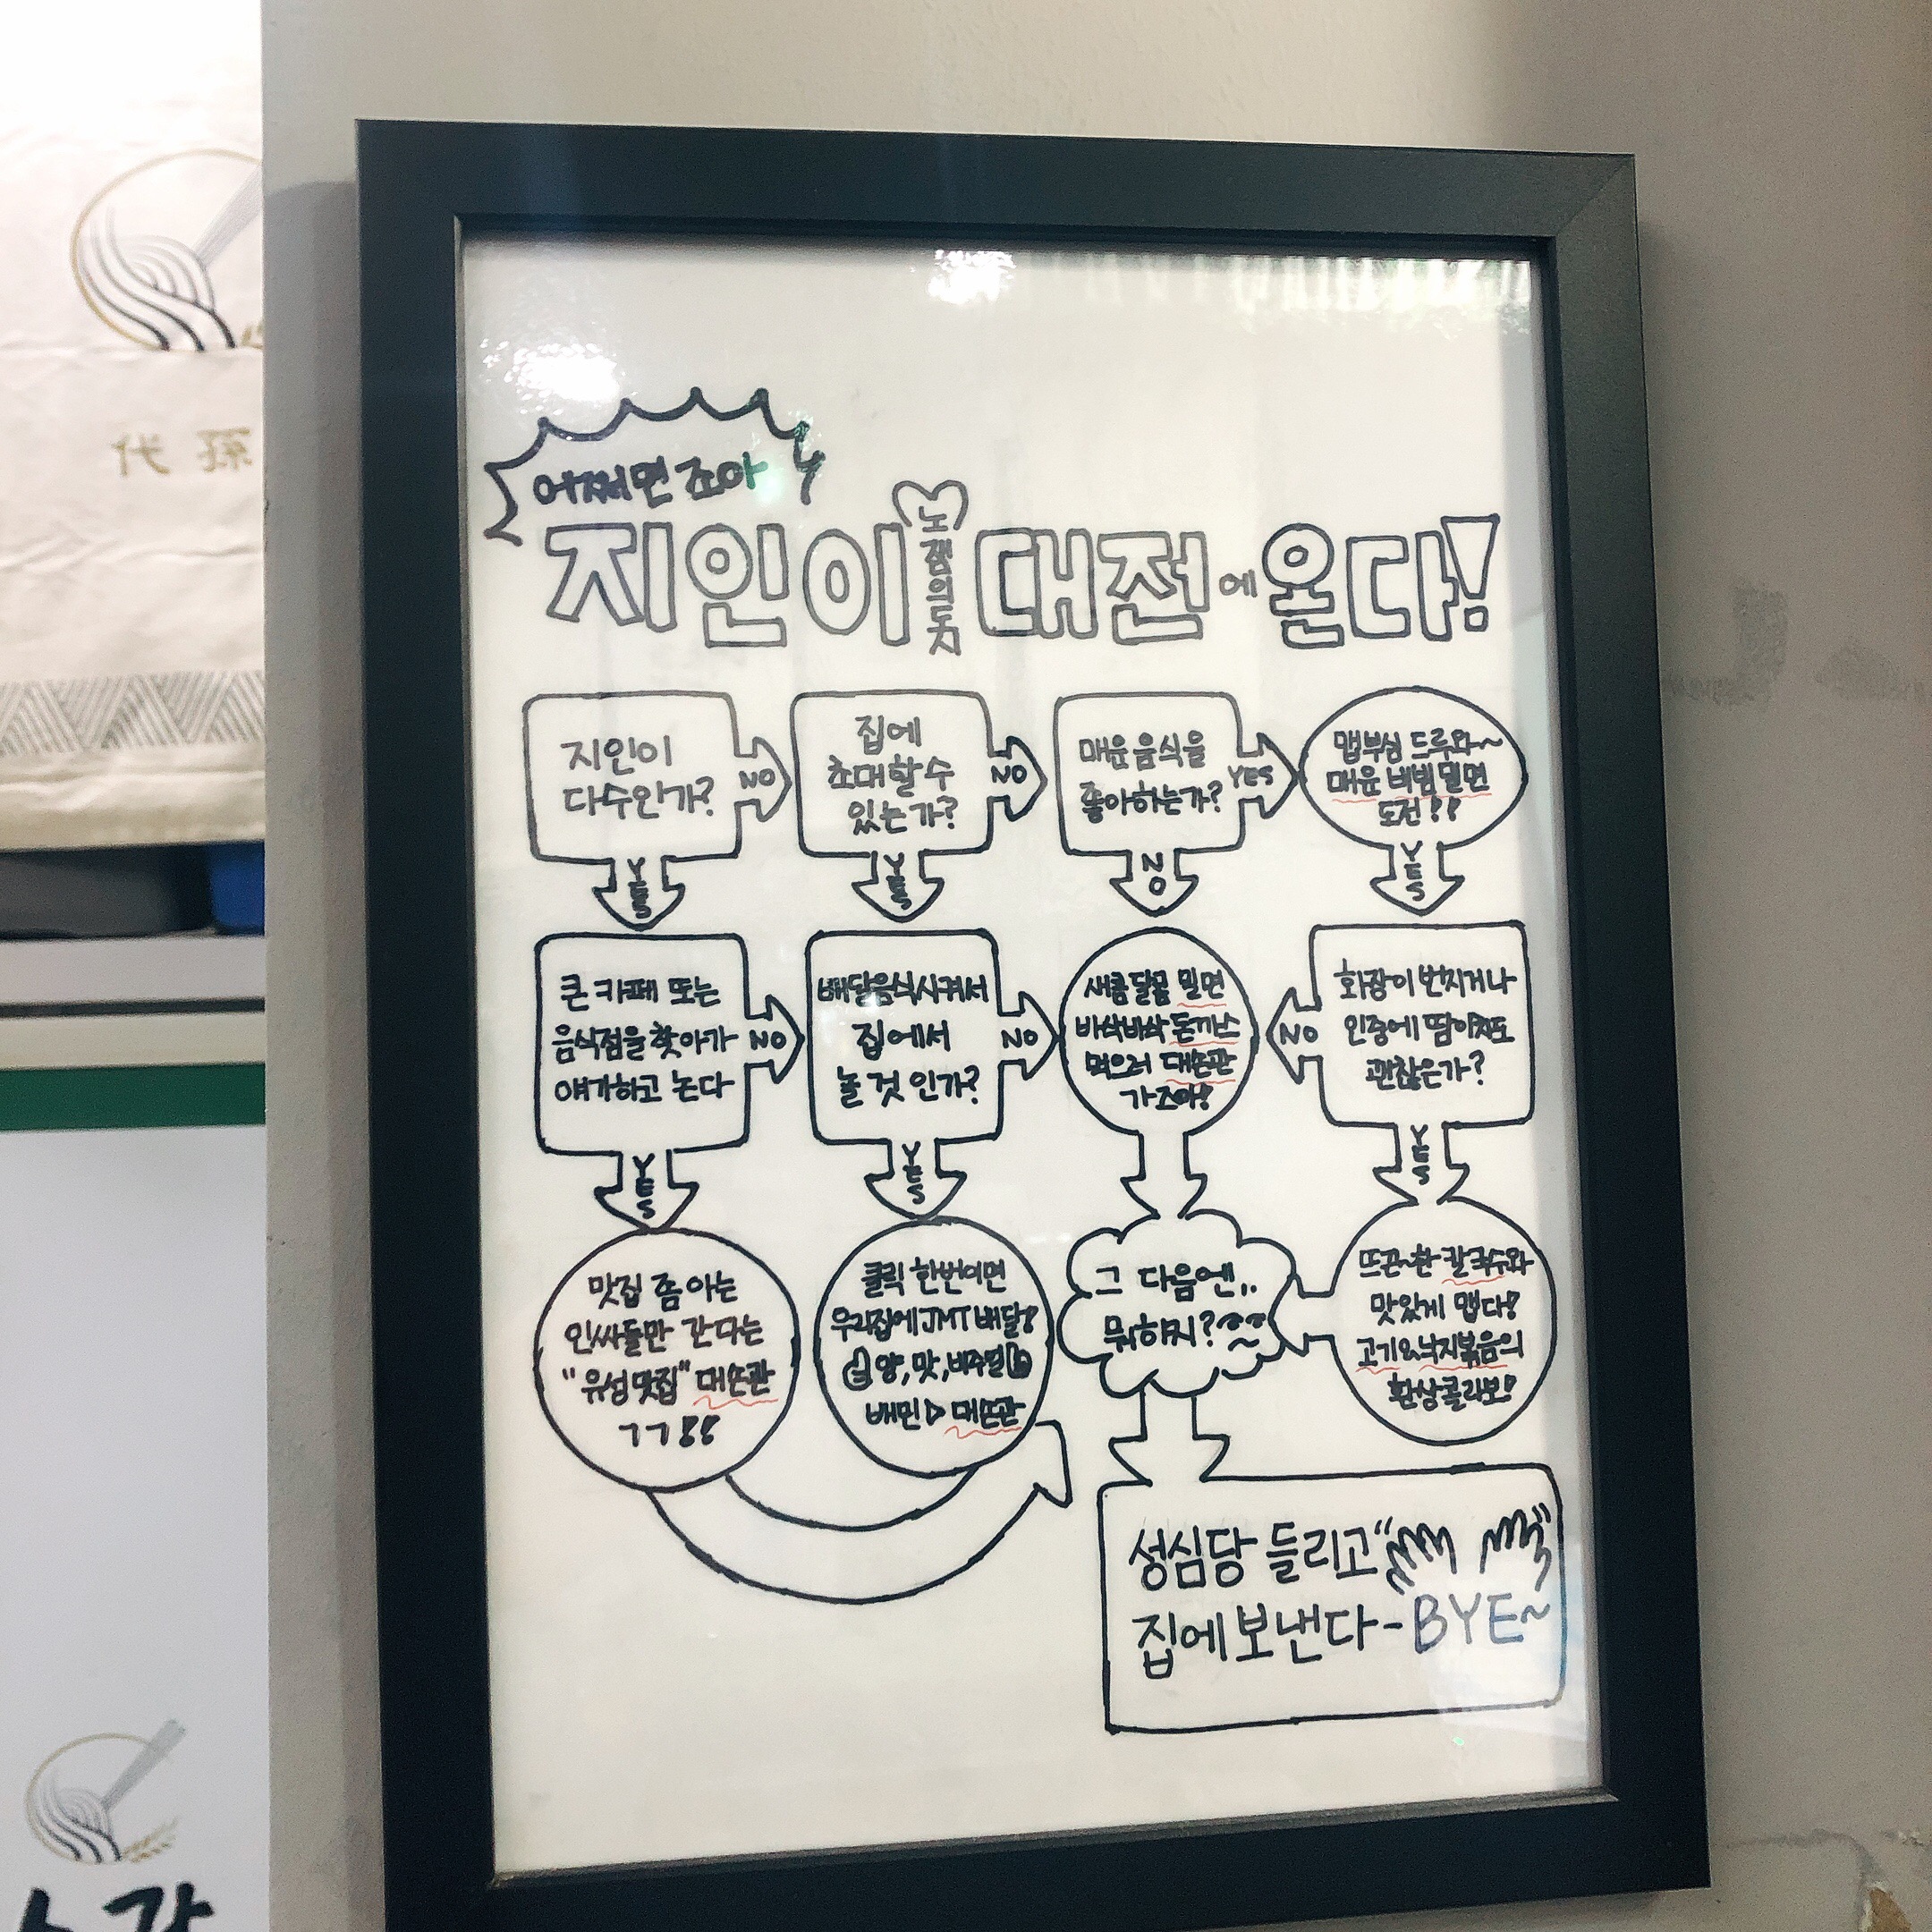 代 孫
어쩌면 조아
지인이 노잼의도시 대전에 온다!
지인이
다수인가?
NO
YES
집에
초대할 수
있는가?
NO
YES
매운 음식을
좋아하는가?
YES
NO
맵부심 드루와~
매운 비빔밀면
도전!!
YES
큰 카페 또는
음식점을 찾아가
얘기하고 논다
NO
YES
배달음식시켜서
집에서
놀 것 인가?
NO
YES
새콤달콤 밀면
바삭바삭 돈까스
먹으러 대손관
가조아!
화장이 번지거나
인중에 땀이차도
괜찮은가?
NO
YES
맛집 좀 아는
인싸들만 간다는
"유성맛집" 대손관
ㄱㄱ!!
클릭 한번이면
우리집에 JMT 배달!
양, 맛, 비주얼
배민▷대손관
그 다음엔..
뭐하지?
뜨끈~한 칼국수와
맛있게 맵다!
고기&낙지볶음의
환상콜라보!
성심당 들리고
집에 보낸다-BYE~